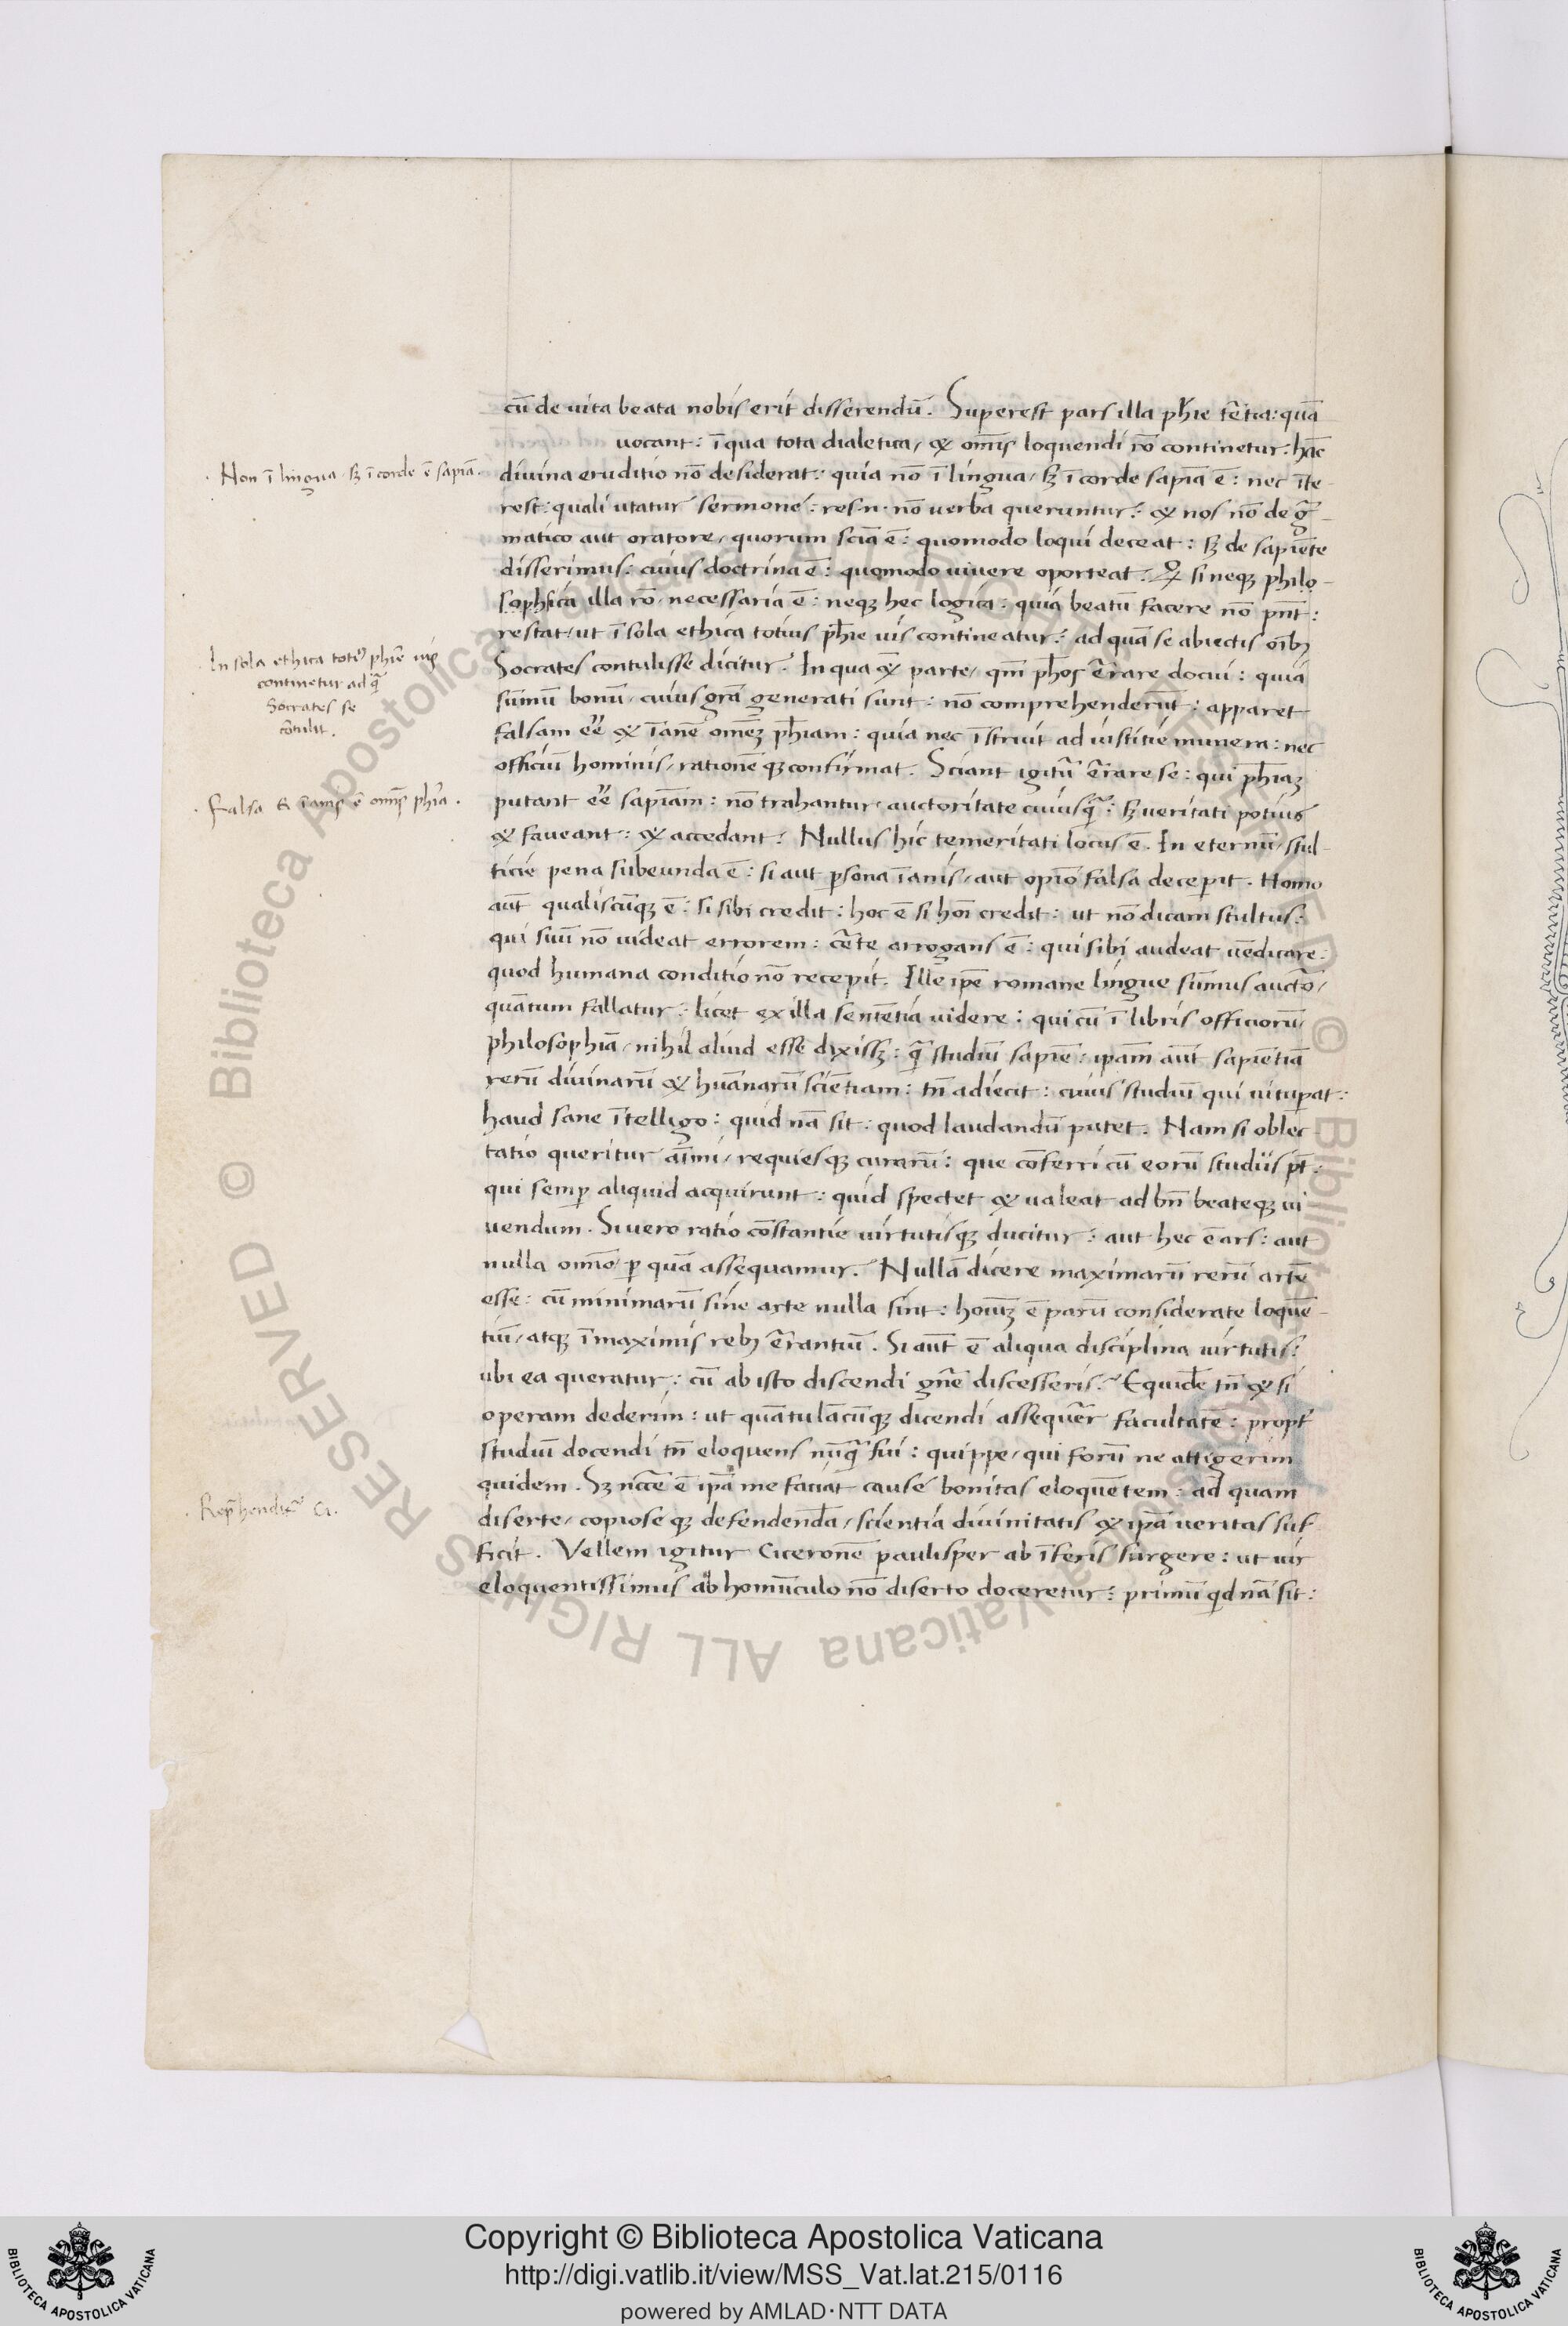 cū de uita beata nobis erit disserendū. Superest pars illa phīe t̄tia: quā
uocant: ī qua tota dialetica, & om̄is loquendi rō continetur: hāc
· Non ī lingua · sꝫ ī corde ē sapīa.
diuina eruditio nō desiderat: quia nō ī lingua, sꝫ ī corde sapīa ē: nec īte-
rest: quali utatur sermone: res·n· nō uerba queruntur: & nos nō de gͣ-
matico aut oratore, quorum scīa ē: quomodo loqui deceat: sꝫ de sapiēte
disserimus: cuius doctrina ē: quomodo uiuere oporteat. si neqꝫ philo-
sophica illa rō, necessaria ē: neqꝫ hec logica: quia beatū facere nō pn̄t:
restat, ut ī sola ethica totius phīe uis contineatur: ad quā se abiectis oībꝫ
In sola ethica totiꝰ phīe uis
continetur ad qͣ̄
Socrates se
cōtulit.
Socrates contulisse dicitur. In qua parte, qm̄ phōs ērrare docui: quia
sūmū bonū, cuius grā generati sunt: nō comprehenderūt: apparet
falsam eē̄ & īanē omēꝫ phīam: quia nec īstruit ad iustitie munera: nec
officiū hominis, rationēqꝫ confirmat. Sciant igitū ērrare se: qui phīaꝫ
· Falsa & īanis ē omīs phīa.
putant eē̄ sapīam: nō trahantur, auctoritate cuiusqͣ̄: sꝫ ueritati potius
& faueant: & accedant. Nullus hic temeritati locus ē. In eternū, stul-
ticie pena subeunda ē: si aut ꝑsona īanis, aut opīo falsa deceꝑit. Homo
aūt qualiscūqꝫ ē: si sibi credit: hoc ē si hoī credit: ut nō dicam stultus:
qui suū nō uideat errorem: c̄te arrogans ē: qui sibi audeat uēdicare:
quod humana conditio nō recepit. Ille ip̄e romane lingue sūmus auctō,
quātum fallatur: licet ex illa sentētia uidere: qui cū ī libris officiorū,
philosophiā, nihil aliud esse dixissꝫ: qͣ̄ studiū sapiē: ip̄am aūt sapiētiā
rerū diuinarū & huānarū sciētiam: tn̄ adiecit: cuius studiū qui uituꝑat:
haud sane ītelligo: quid nā sit: quod laudandū putet. Nam si oblec
tatio queritur aīmi, requiesqꝫ curarū: que cōferri cū eorū studiis pt̄:
qui semꝑ aliquid acquirunt: quid spectet & ualeat ad bn̄ beateqꝫ ui
uendum. Siuero ratio cōstantie uirtutisqꝫ ducitur: aut hec ē ars: aut
nulla omīo, ꝑ quā assequamur. Nullā dicere maximarū rerū artē
esse: cū minimarū sine arte nulla sint: hoīuꝫ ē parū considerate loquē-
tiū, atqꝫ ī maximis rebꝫ ērrantiū. Si aūt ē aliqua disciplina uirtutis:
ubi ea queratur: cū ab isto discendi gn̄e discesseris? Equidē tn̄ & si
operam dederim: ut quātulācūqꝫ dicendi assequēr facultatē: propt̄
studiū docendi tn̄ eloquens nūqͣ̄ fui: quippe, qui forū ne attigerim
quidem. Sꝫ nc̄cē ē ip̄a me faciat cause bonitas eloquētem: ad quam
· Rep̄hendit̄ Ci.
diserte, copioseqꝫ defendendā, scientia diuinitatis & ip̄a ueritas suf
ficit. Vellem igitur Ciceronē paulisper ab īferis surgere: ut uir
eloquentissimus ab homūculo nō diserto doceretur: primū qͥd nā sit:
Copyright © Biblioteca Apostolica Vaticana
http://digi.vatlib.it/view/MSS_Vat.lat.215/0116
powered by AMLAD·NTT DATA
BIBLIOTECA APOSTOLICA VATICANA
BIBLIOTECA APOSTOLICA VATICANA